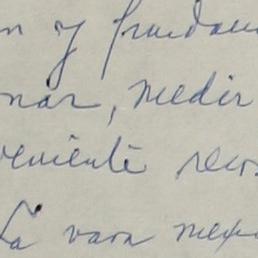 n y fundam
nar, medir
veniente recor
La vara mexi